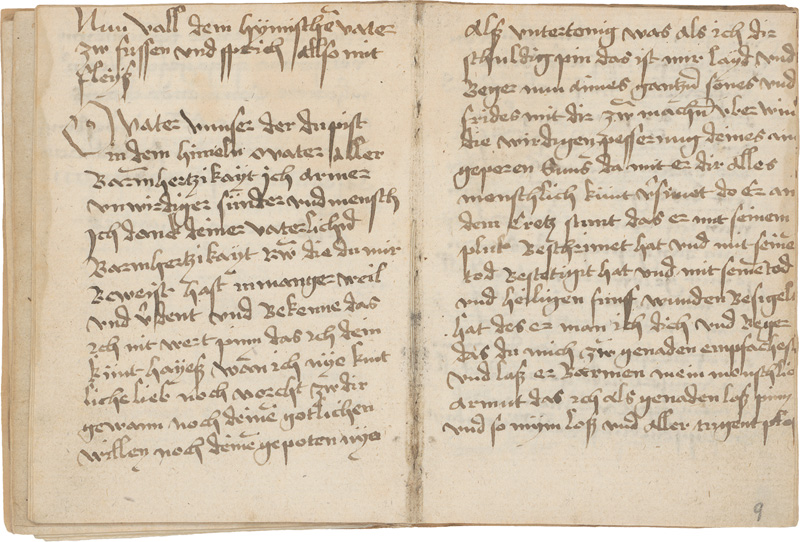 Nun vall dem hymischē vater
zw fussen vnd sprich allso mit
fleyß
O vater vnnser der du pist
in dem himeln O vater aller
Barmhertzikayt Ich armer
vnwirdiger sünder vnd mensch
Ich danck deiner vaterlichñ
Barmhertzikayt die du mir
Beweist hast in manger weil
vnd vnd Bekenne das
ich nit wert pinn das ich dein
kint hayeß wan ich nye kint
liche lieb noch vorcht zw dir
gewann noch deinē gotlichen
willen noch deinē gepoten nye
Alß vntertenig was als ich dir
schuldig pin das ist mir layd vnd
Beger nun aines gantzñ sones vnd
frides mit dir zw machñ vber
die wirdigen pesserung deines ain
geperen Suns da mit er dir alles
menschlich künt do er an
dem Cretz stunt das er mit seinem
plut Beschrimet hat vnd mit seinē
tod Bestetigt hat vnd mit seinē tod
vnd heiligen fünf wunden Besigelt
hat des er man ich dich vnd Beger
das du mich zw genaden empfachest
vnd laß er Barmen mein menschlic
armut das ich als genaden loß pinn
vnd so loß vnd aller tugent
9